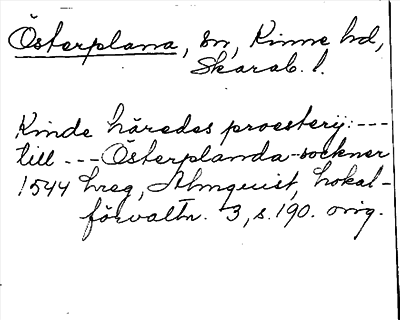 Österplana, sn, Kinne hd,
Skarab. l.
Kinde häredes proesterij: ---
till --- Österplanda-sockner
1544 hreg, Almquist, Lokal-
förvaltn. 3, s. 190. orig.